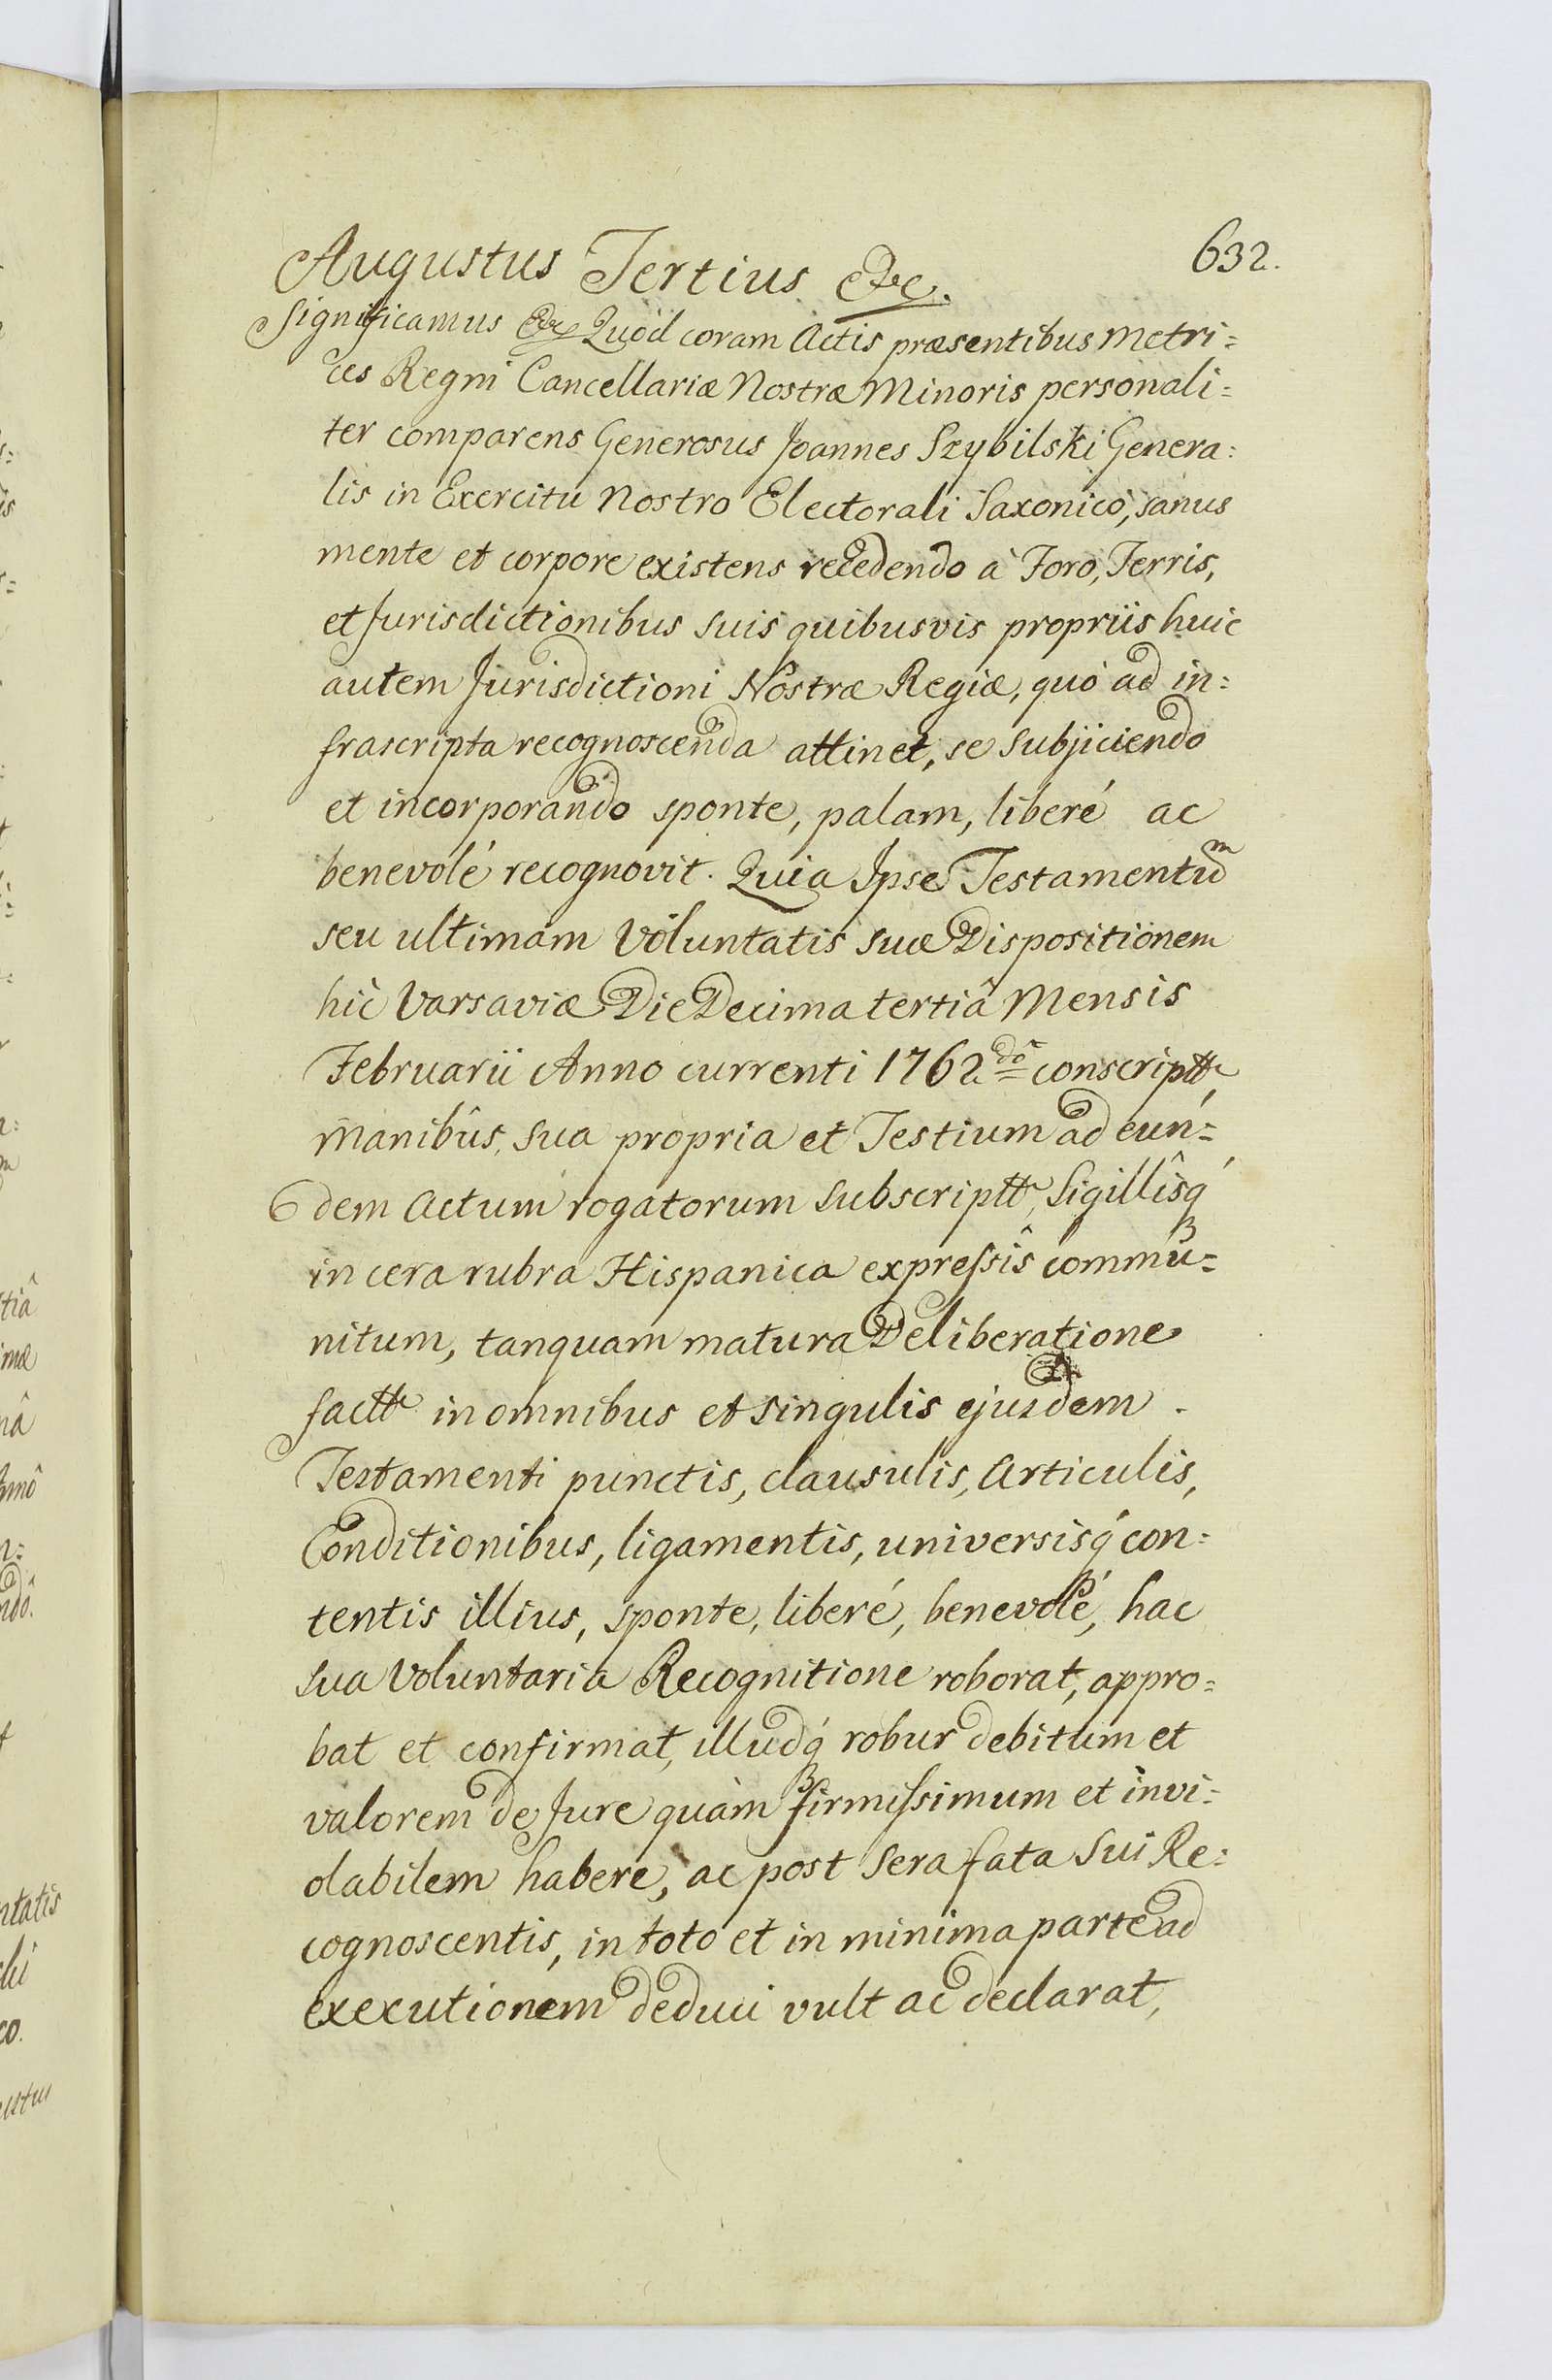 632.
Augustus Tertius &c.
Significamus &c Quod coram Actis præsentibus Metri=
ces Regni Cancellariæ Nostræ Minoris personali=
ter comparens Generosus Joannes Szybilski Genera=
lis in Exercitu Nostro Electorali Saxonico, sanus
mente et corpore existens recedendo à Foro, Terris,
et Jurisdictionibus suis quibusvis propriis huic
autem Jurisdictioni Nostræ Regiæ, quò ad in=
frascripta recognoscenda attinet, se subjiciendo
et incorporando sponte, palam, liberé ac
benevolé recognovit. Quia Ipse Testamentu͠m
seu ultimam Voluntatis suæ Dispositionem
hìc Varsaviæ Die Decima tertiâ Mensis
Februarii Anno currenti 1762do conscriptt,
manibûs, sua propria et Testium ad eun=
dem Actum rogatorum subscriptt, Sigillîsq́
in cera rubra Hispanica expressîs commu=
nitum, tanquam matura Deliberatione
factt in omnibus et singulis ejusdem
Testamenti punctis, clausulis, Articulis,
Conditionibus, ligamentis, universisq́ con=
tentis illius, sponte, liberé, benevolé, hac
sua Voluntaria Recognitione roborat, appro=
bat et confirmat, illudq́ robur debitum et
valorem de Jure quàm firmissimum et invi=
olabilem habere, ac post sera fata sui Re=
cognoscentis, in toto et in minima parte ad
executionem deduci vult ac declarat,